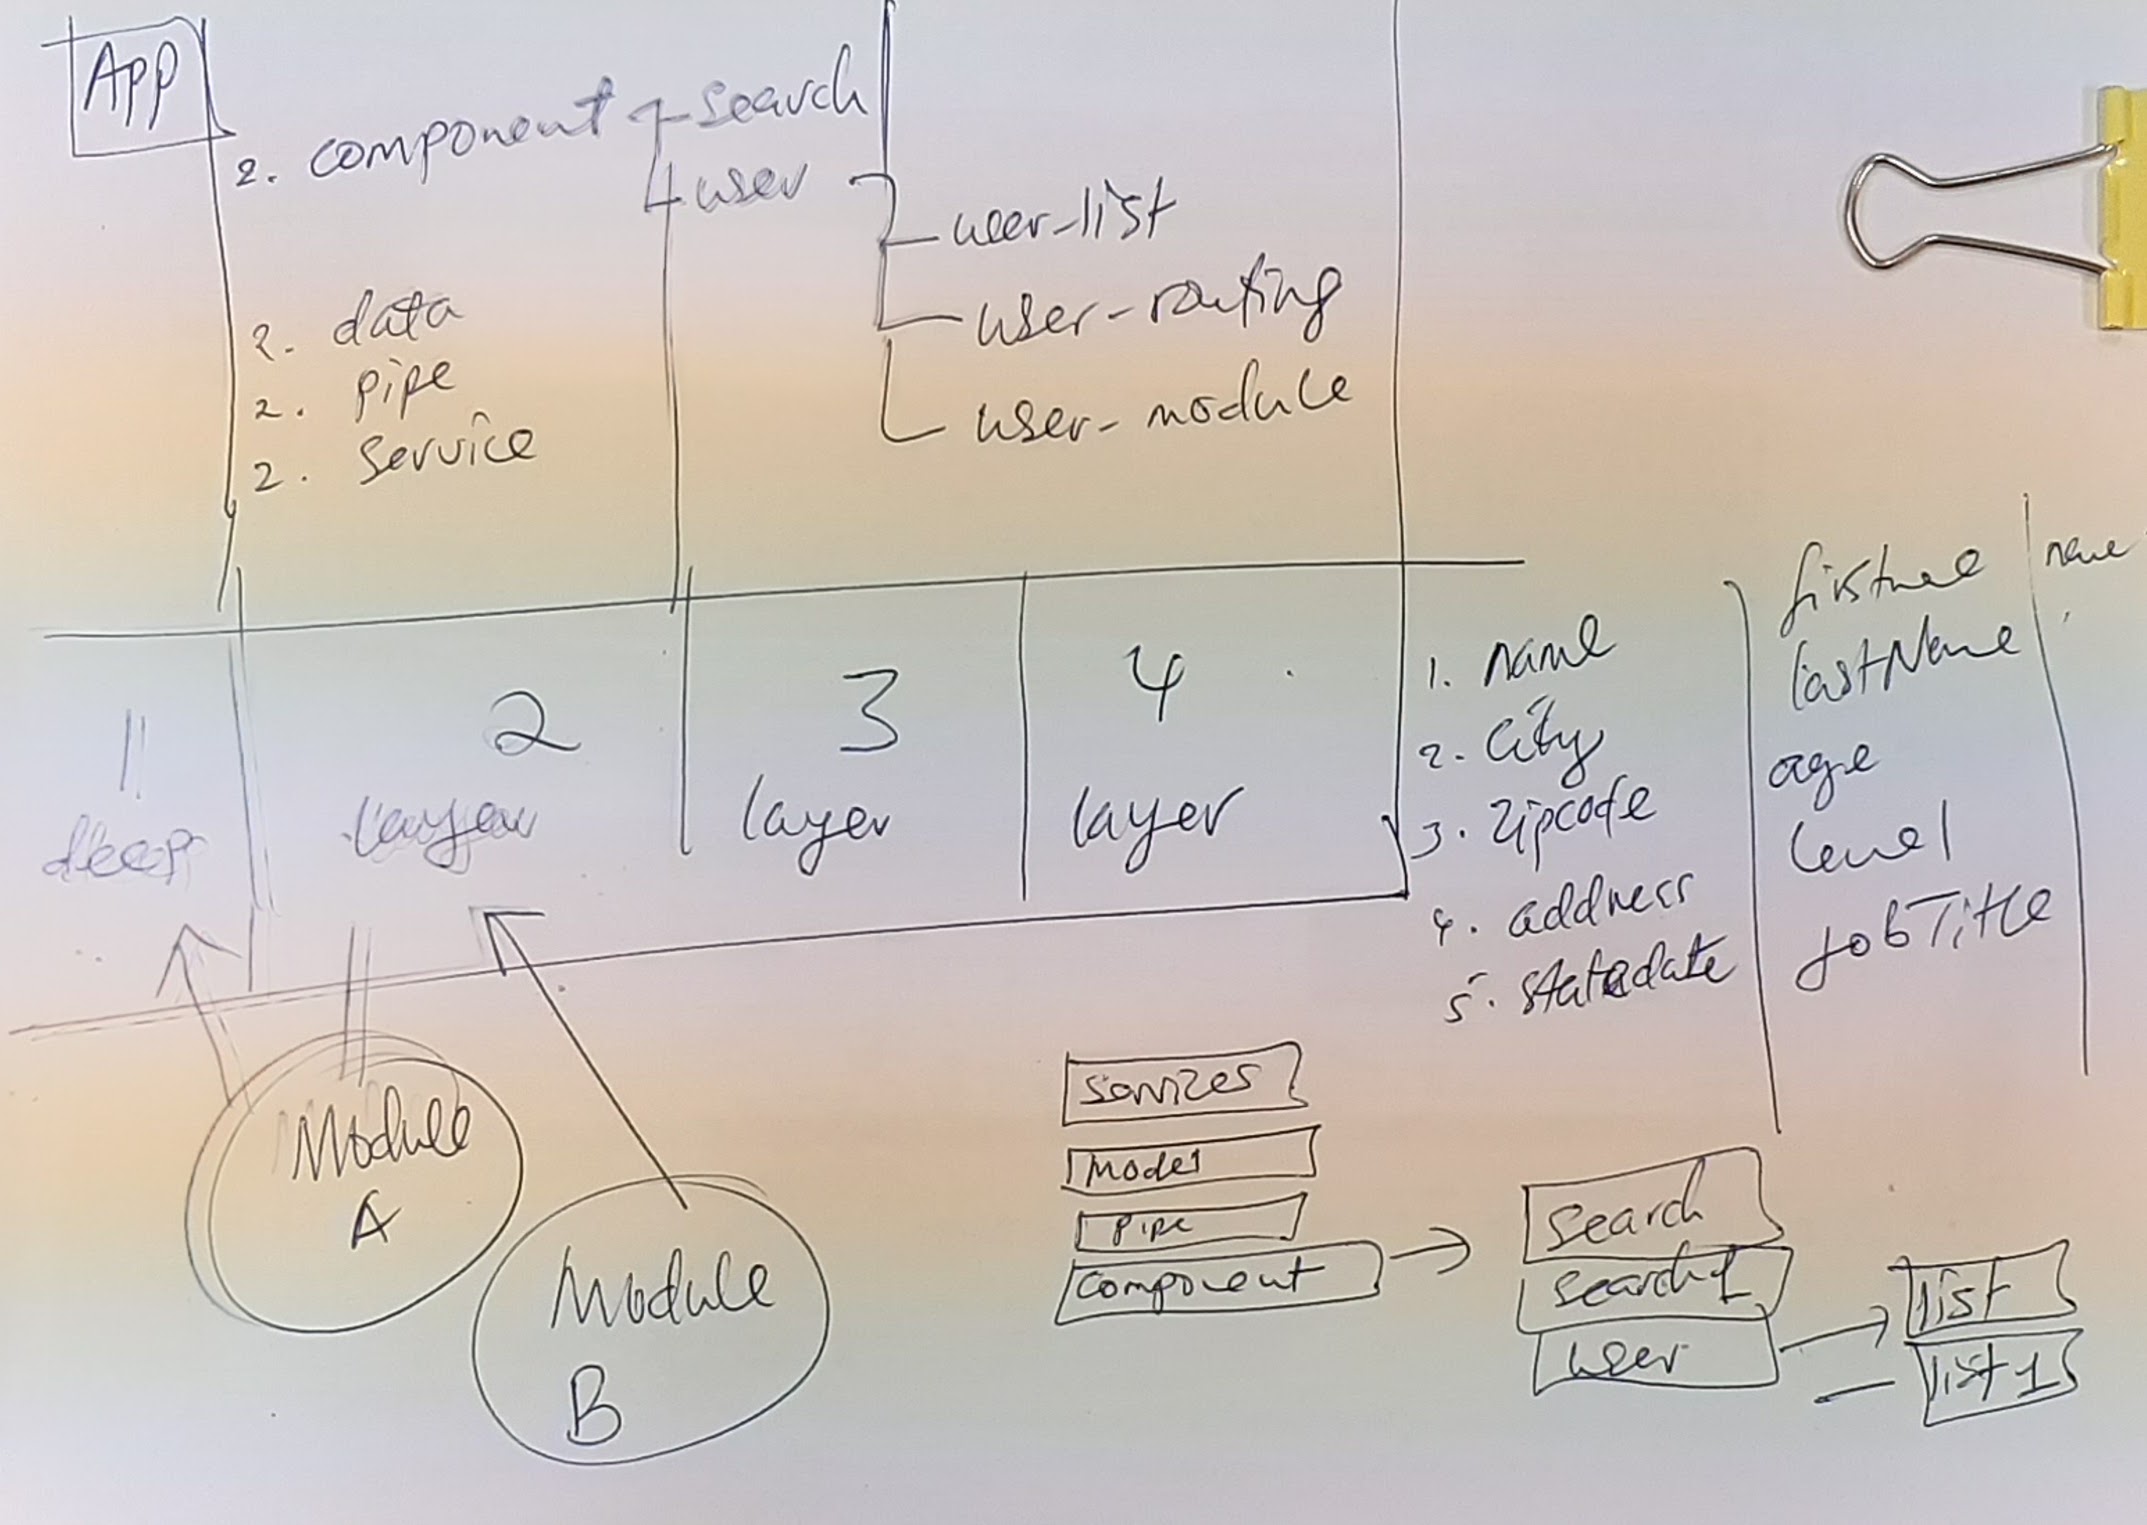 App
2. component
search
user
user-list
user-routing
user-module
2. data
2. pipe
2. service
1
2
3
4
deep
layer
layer
layer
1. name
2. City
3. Zipcode
4. address
5.
lastName
age
level
jobTitle
Module
A
Module
B
services
model
pipe
component
search
search1
user
list
list1